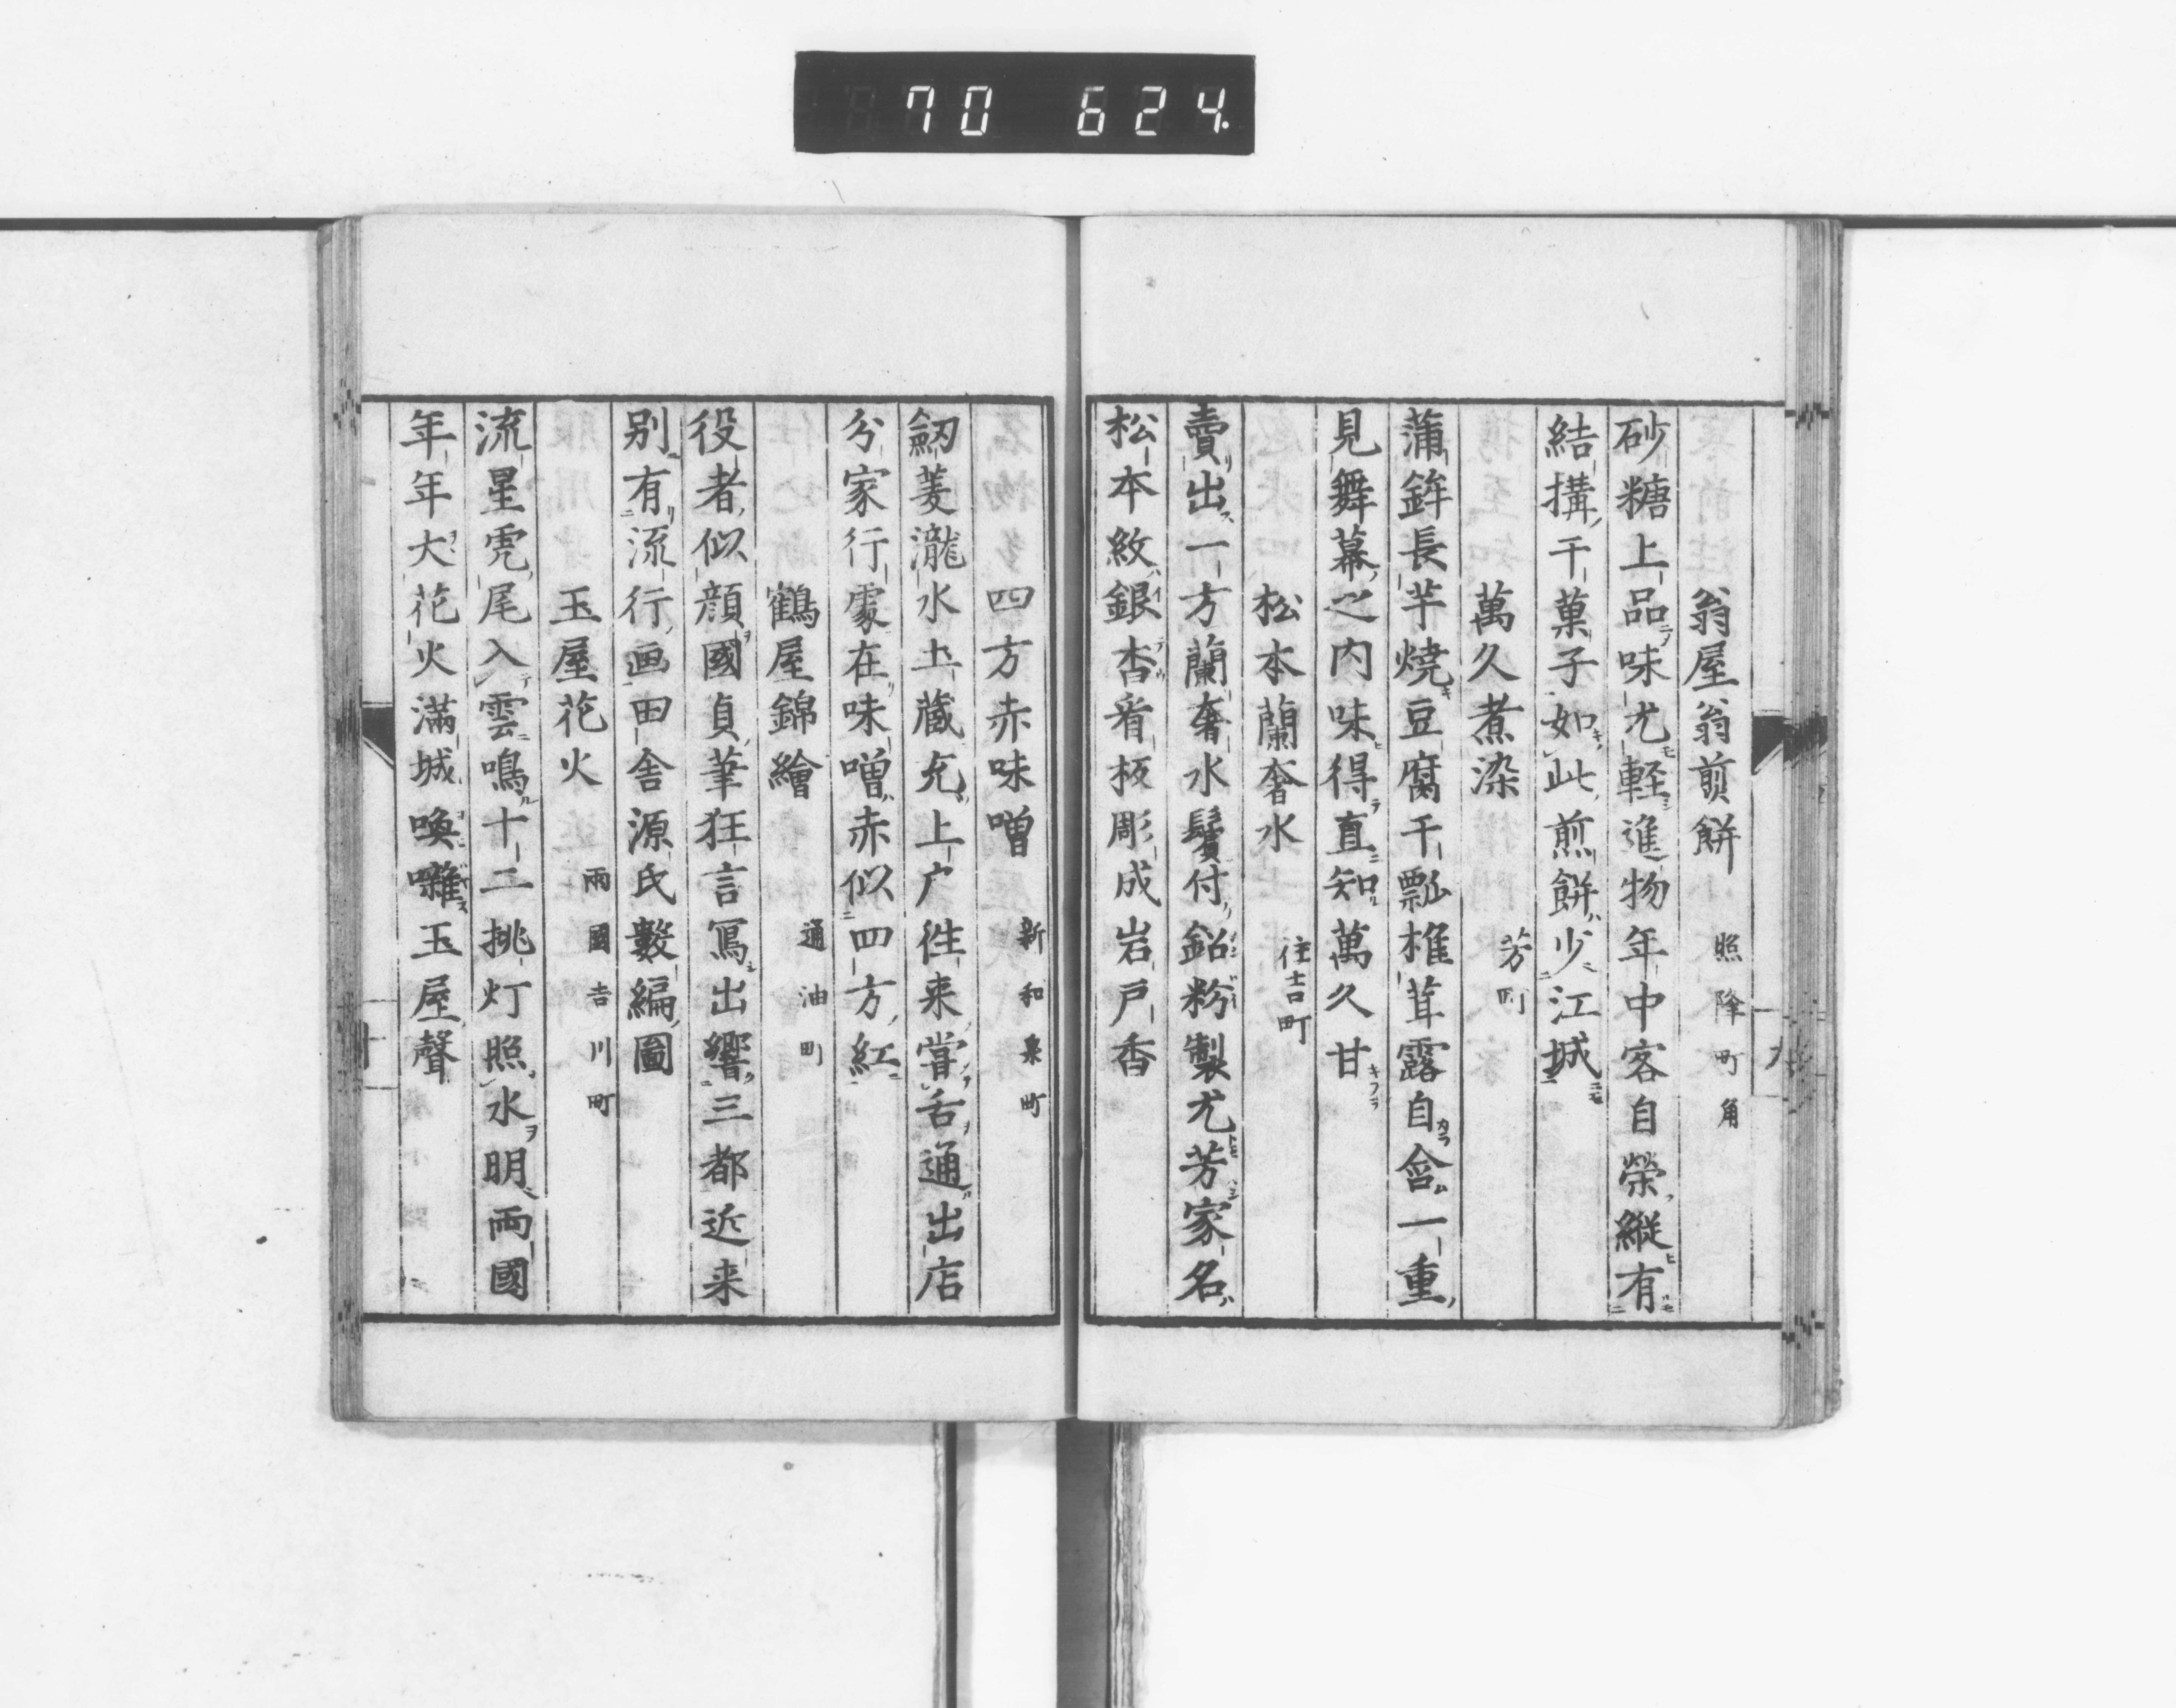 70 624.
翁屋翁煎餅 照降町角
砂糖上品味尤軽進物年中客自榮縦有
結搆干菓子如此煎餅少江城
萬久煮染 芳町
蒲鉾長芋焼豆腐干瓢椎茸露自含一重
見舞幕之内味得直知萬久甘
松本蘭奢水 住吉町
賣出一方蘭奢水鬢付鉛粉製尤芳家名
松本紋銀杏看板彫成岩戸香
四方赤味噌 新和泉町
劔菱瀧水土蔵充上戸徃来嘗舌通出店
分家行處在味噌赤似四方紅
鶴屋錦繪 通油町
役者似顔國貞筆狂言冩出響三都近来
別有流行画田舎源氏數編圖
玉屋花火 兩國吉川町
流星虎尾入雲鳴十二挑灯照水明両國
年年大花火滿城喚囃玉屋聲